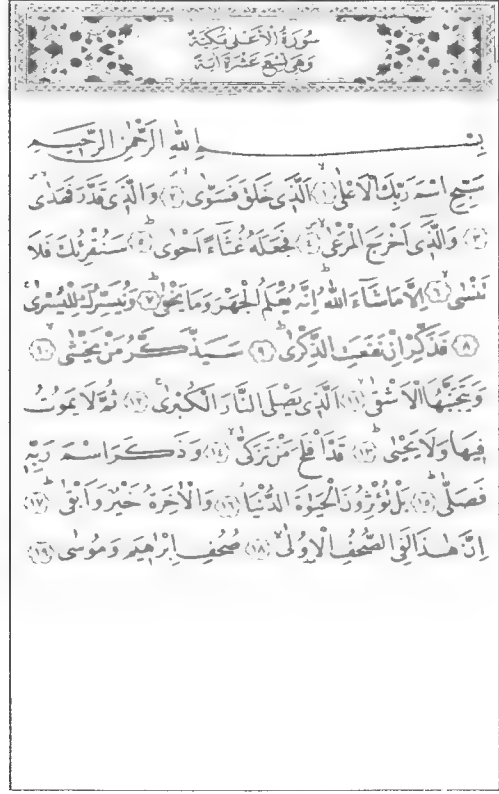 سُورَةُ الْاَعْلٰى مَكِّيَّةٌ
وَهِيَ تِسْعَ عَشْرَةَ اٰيَةً
بِسْمِ اللّٰهِ الرَّحْمٰنِ الرَّحِيمِ
سَبِّحِ اسْمَ رَبِّكَ الْاَعْلٰىۙ ﴿١﴾ اَلَّذ۪ي خَلَقَ فَسَوّٰىۙ ﴿٢﴾ وَالَّذ۪ي قَدَّرَ فَهَدٰىۙ
﴿٣﴾ وَالَّذ۪ٓي اَخْرَجَ الْمَرْعٰىۙ ﴿٤﴾ فَجَعَلَهُ غُثَٓاءً اَحْوٰىۜ ﴿٥﴾ سَنُقْرِئُكَ فَلَا
تَنْسٰىۙ ﴿٦﴾ اِلَّا مَا شَٓاءَ اللّٰهُۜ اِنَّهُ يَعْلَمُ الْجَهْرَ وَمَا يَخْفٰىۜ ﴿٧﴾ وَنُيَسِّرُكَ لِلْيُسْرٰىۚ
﴿٨﴾ فَذَكِّرْ اِنْ نَفَعَتِ الذِّكْرٰىۜ ﴿٩﴾ سَيَذَّكَّرُ مَنْ يَخْشٰىۙ ﴿١٠﴾
وَيَتَجَنَّبُهَا الْاَشْقٰىۙ ﴿١١﴾ اَلَّذ۪ي يَصْلَى النَّارَ الْكُبْرٰىۚ ﴿١٢﴾ ثُمَّ لَا يَمُوتُ
ف۪يهَا وَلَا يَحْيٰىۜ ﴿١٣﴾ قَدْ اَفْلَحَ مَنْ تَزَكّٰىۙ ﴿١٤﴾ وَذَكَرَ اسْمَ رَبِّه۪
فَصَلّٰىۜ ﴿١٥﴾ بَلْ تُؤْثِرُونَ الْحَيٰوةَ الدُّنْيَاۘ ﴿١٦﴾ وَالْاٰخِرَةُ خَيْرٌ وَاَبْقٰىۜ ﴿١٧﴾
اِنَّ هٰذَا لَفِي الصُّحُفِ الْاُو۫لٰىۙ ﴿١٨﴾ صُحُفِ اِبْرٰه۪يمَ وَمُوسٰى ﴿١٩﴾